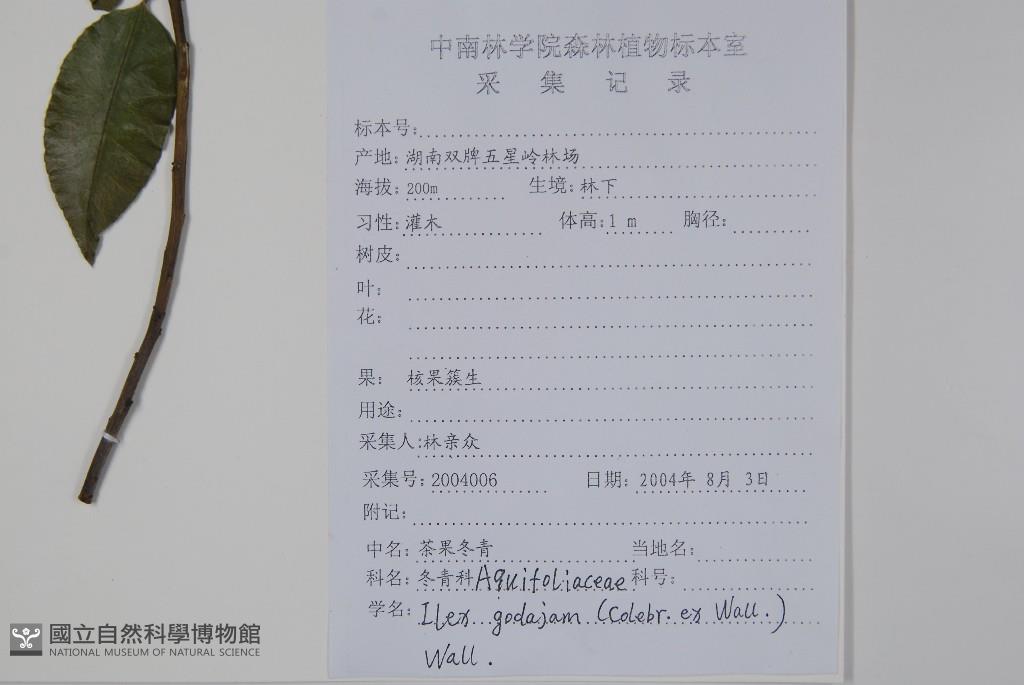 中南林学院森林植物标本室
采 集 记 录
标本号:
产地: 湖南双牌五星岭林场
海拔: 200m 生境: 林下
习性: 灌木 体高: 1 m 胸径:
树皮:
叶:
花:
果: 核果簇生
用途:
采集人: 林亲众
采集号: 2004006 日期: 2004年 8月 3日
附记:
中名: 茶果冬青 当地名:
科名: 冬青科 Aquifoliaceae 科号:
学名: Ilex godajam (Colebr. ex Wall.)
Wall.
國立自然科學博物館
NATIONAL MUSEUM OF NATURAL SCIENCE